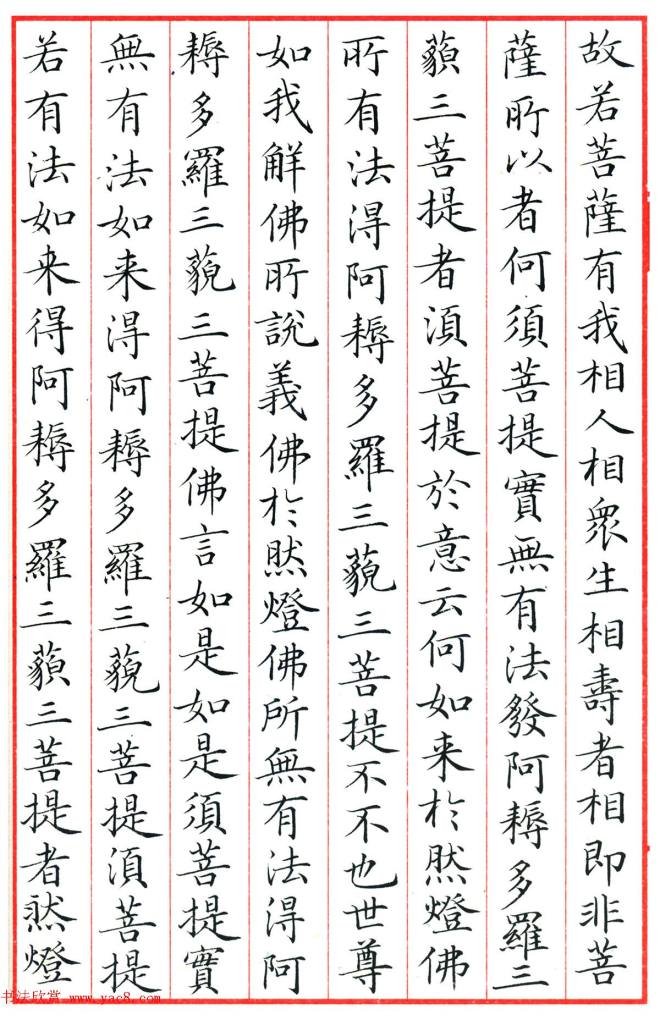 故若菩薩有我相人相眾生相壽者相即非菩
薩所以者何須菩提實無有法發阿耨多羅三
藐三菩提者須菩提於意云何如来於然燈佛
所有法得阿耨多羅三藐三菩提不不也世尊
如我解佛所說義佛於然燈佛所無有法得阿
耨多羅三藐三菩提佛言如是如是須菩提實
無有法如来得阿耨多羅三藐三菩提須菩提
若有法如来得阿耨多羅三藐三菩提者然燈
书法欣赏 www.yac8.com